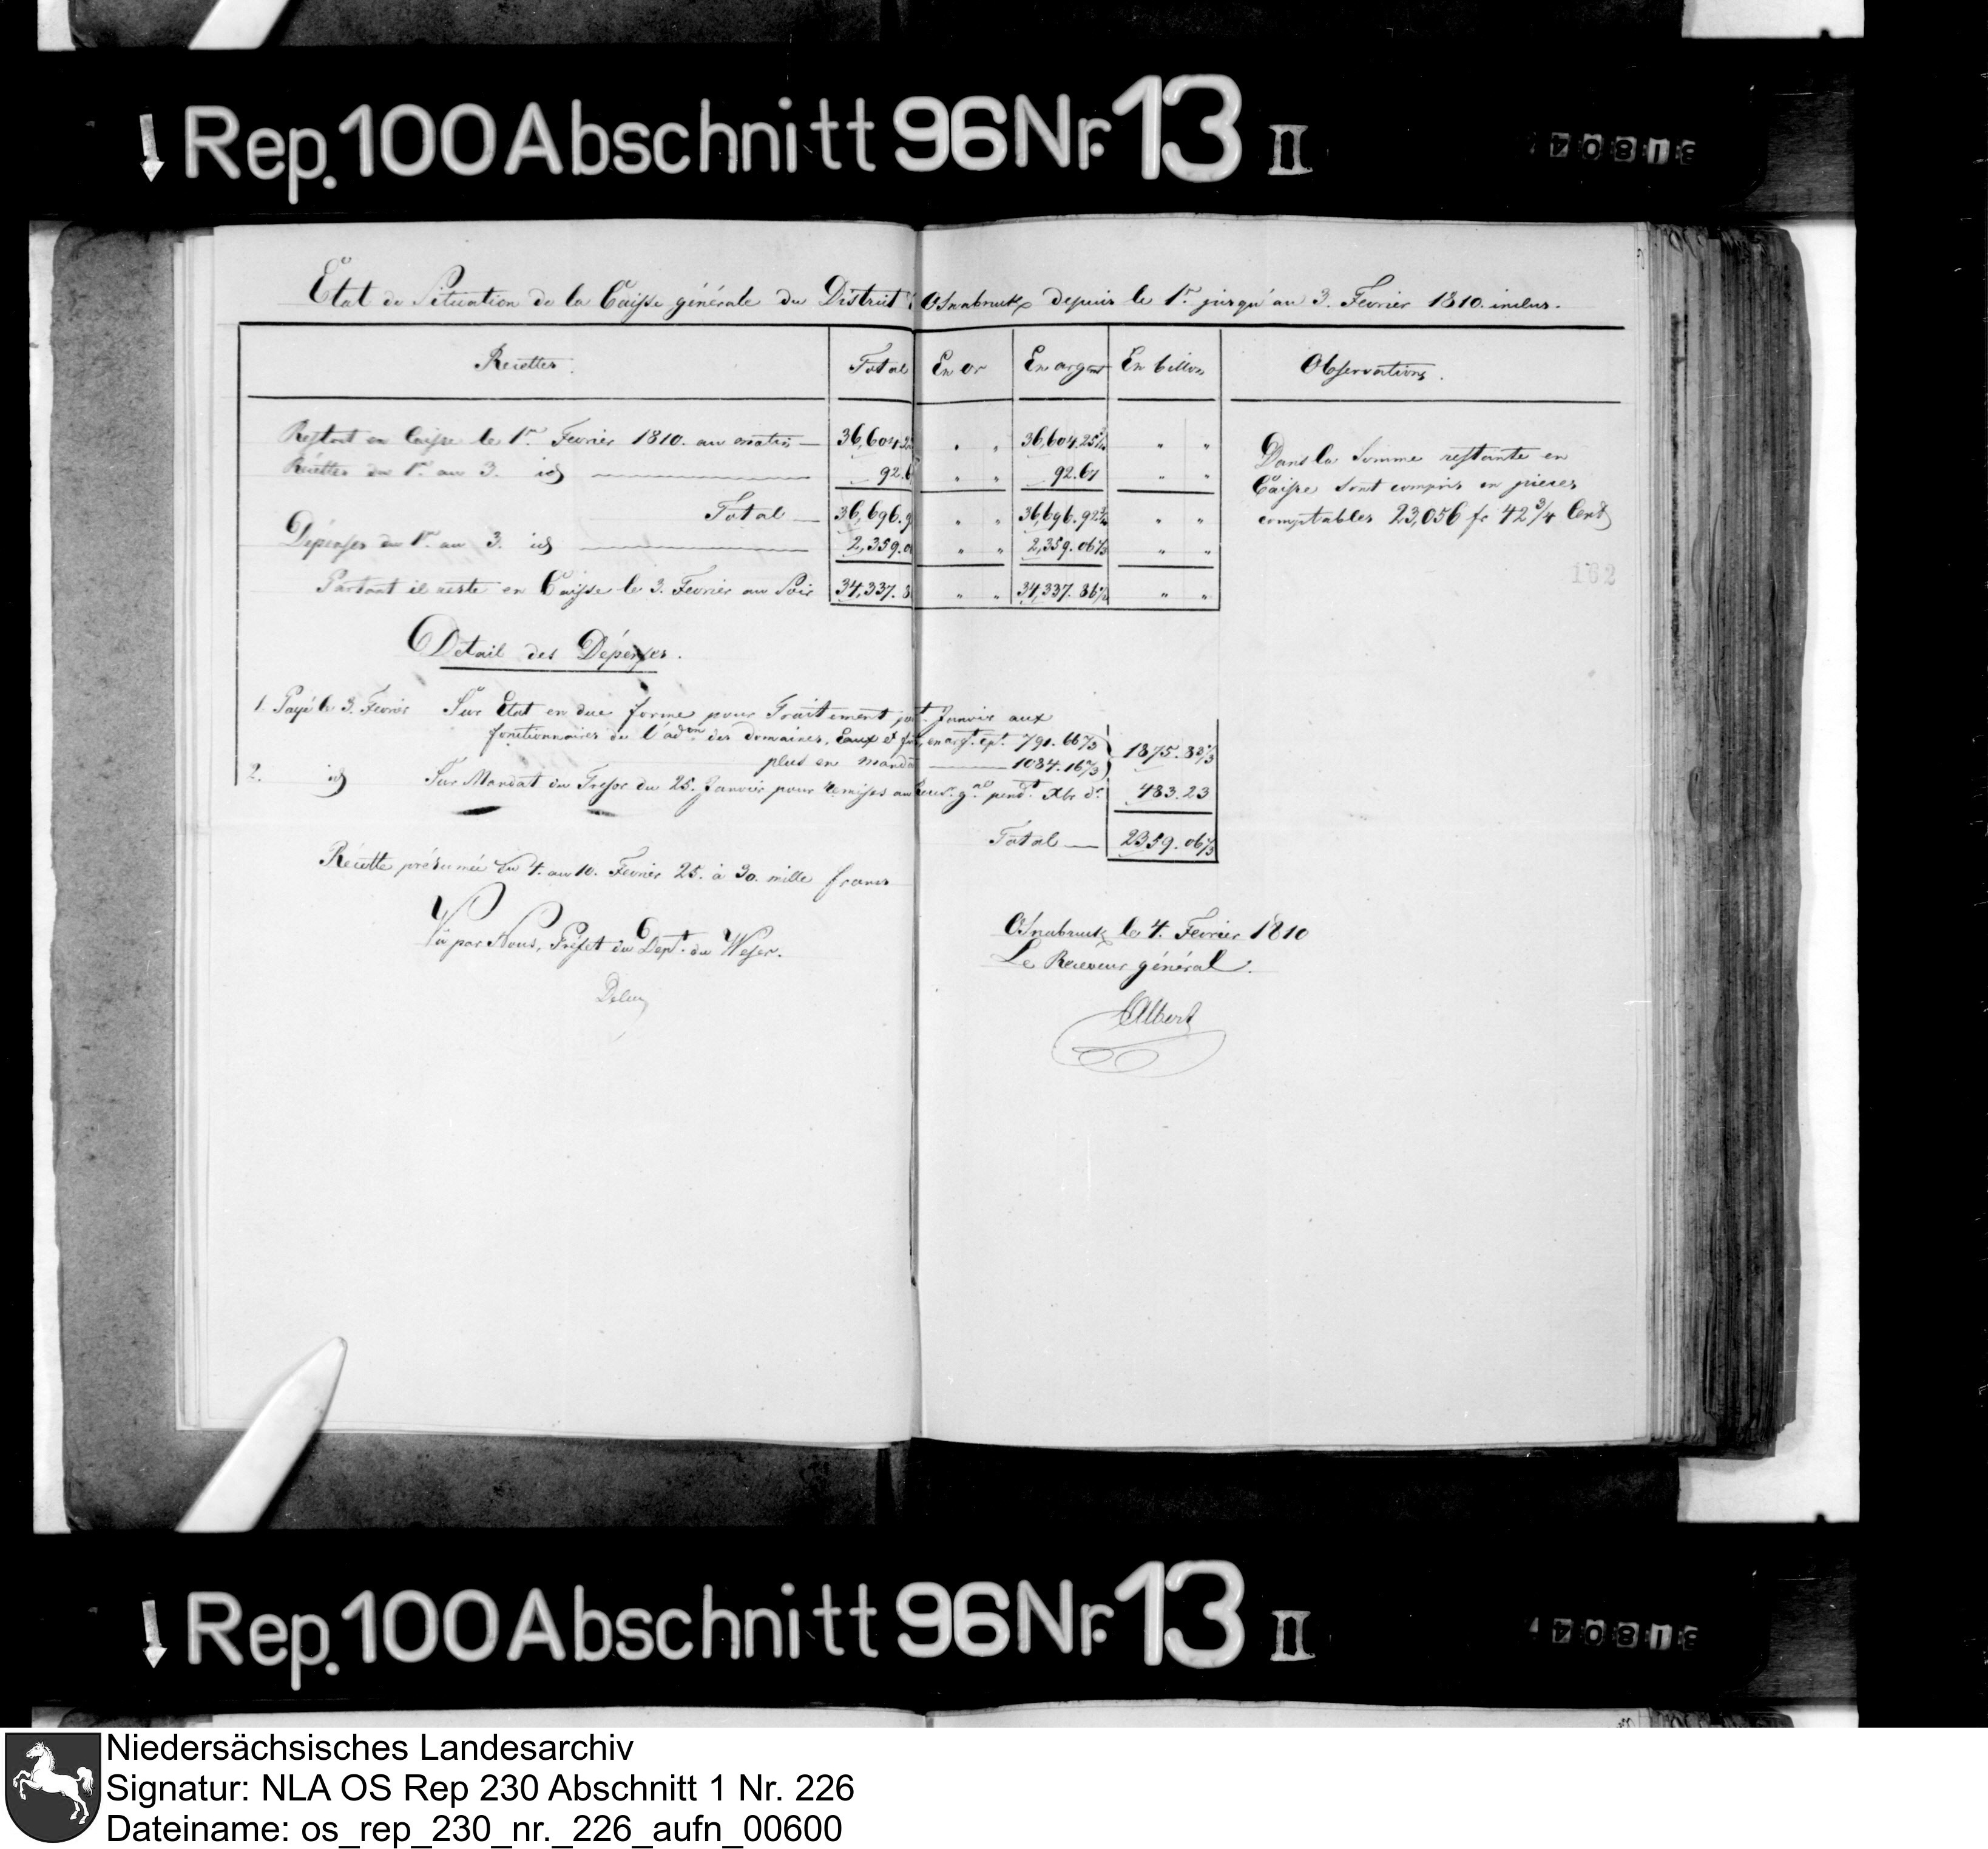 Rep. 100 Abschnitt 96 Nr. 13 II
Etat de Situation de la Caisse générale du District Osnabruck depuis le 1r. jusqu'au 3. Fevrier 1810. inclus.
Recettes. Total En or En argent En billon Observations.
Restant en Caisse le 1r. Fevrier 1810. au matin — 36,604.2 " " 36,604.25 " "
Récettes du 1r. au 3. id — 92.6 " " 92.67 " "
Total — 36,696.9 " " 36,696.92 " "
Dépenses du 1r. au 3. id — 2,359.0 " " 2,359.06 " "
Partant il reste en Caisse le 3. Fevrier au Soir 34,337.8 " " 34,337.86 " "
Dans la Somme restante en
Caisse sont compris en pieces
comptables 23,056 fr 42 3/4 Cent
162
Détail des Dépenses.
1. Payé le 3. Fevrier Sur Etat en due forme pour Traitement pt. Janvier aux
fonctionnaires de l'adon. des domaines, Eaux et en argt. cpt. 791.66 2/3
plus en Mandat — 1084.16 2/3 1875.83 1/3
2. id Sur Mandat du Tresor du 25. Janvier pour remises au Recev. gnal pendt. Xbr dr. 483.23
Total — 2359.06 1/3
Récette présumée du 4. au 10. Fevrier 25. à 30. mille francs
Vu par Nous, Préfet du Dept. du Weser.
Osnabruck le 4. Fevrier 1810
Le Receveur général.
Albert
Rep. 100 Abschnitt 96 Nr. 13 II
Niedersächsisches Landesarchiv
Signatur: NLA OS Rep 230 Abschnitt 1 Nr. 226
Dateiname: os_rep_230_nr._226_aufn_00600